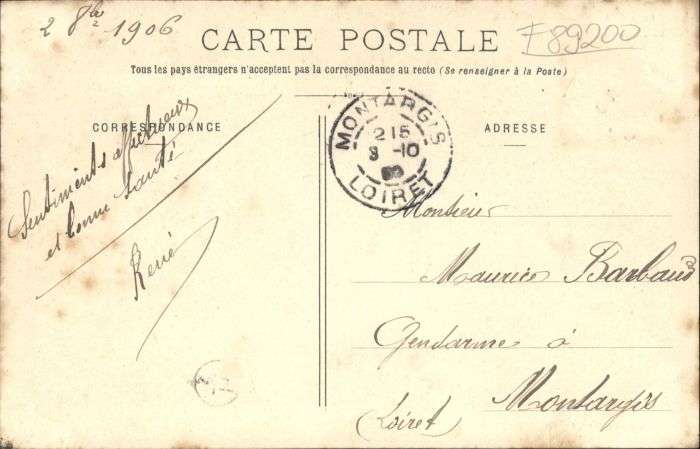 2 8bre 1906
F89200
CARTE POSTALE
Tous les pays étrangers n'acceptent pas la correspondance au recto (Se renseigner à la Poste)
CORRESPONDANCE
ADRESSE
MONTARGIS
215
3 -10
LOIRET
Sentiments affectueux
et bonne santé
René
Monsieur
Maurice Barbaud
Gendarme à
Montargis
(Loiret)